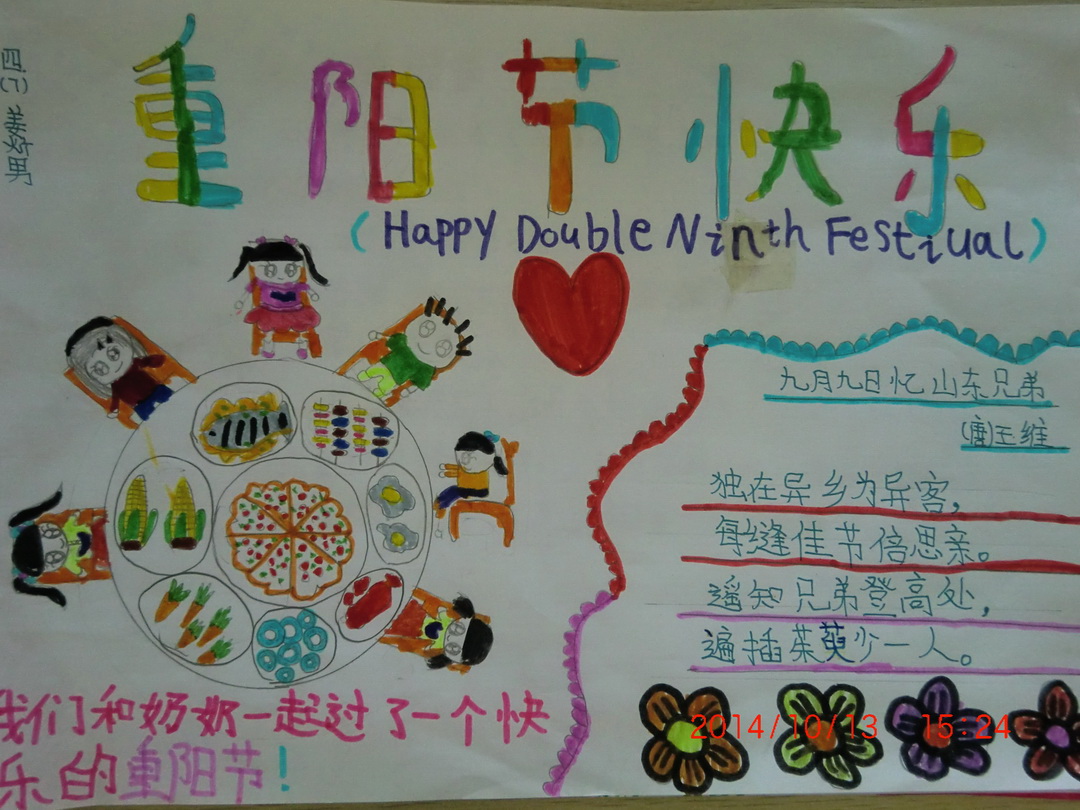 四(7) 姜烨男
重阳节快乐
(Happy Double Ninth Festiual)
九月九日忆山东兄弟
(唐)王维
独在异乡为异客，
每缝佳节倍思亲。
遥知兄弟登高处，
遍插茱萸少一人。
我们和奶奶一起过了一个快
乐的重阳节！
2014/10/13 15:24